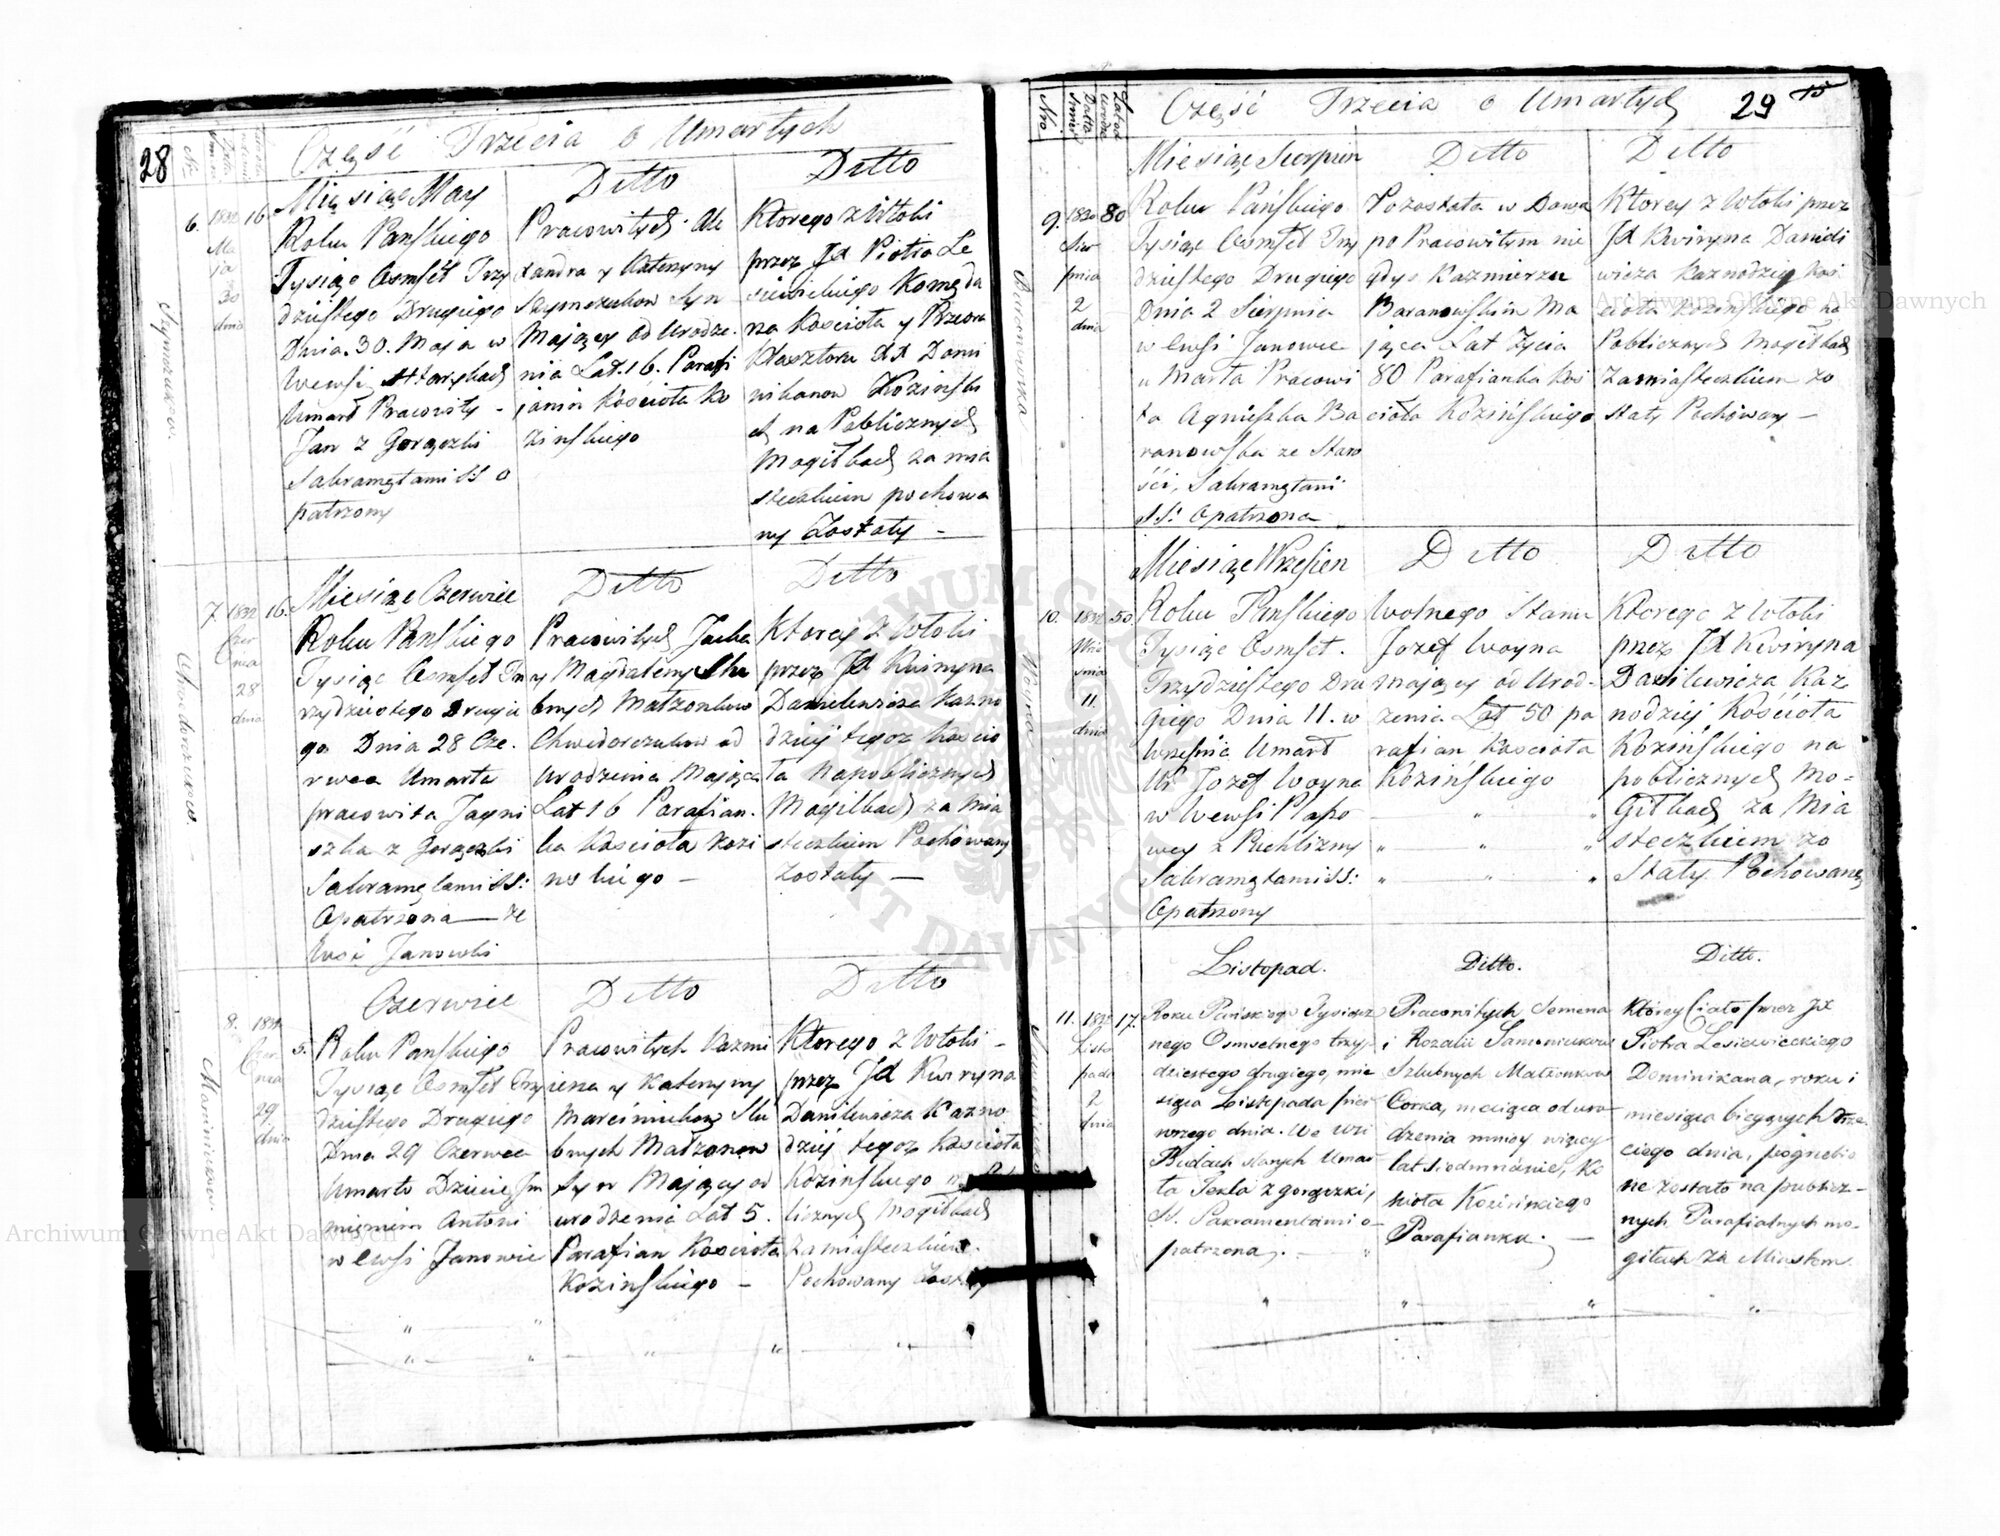 28
Część Trzecia o Umarłych
Miesiąc May
6. 1832 16.
Ma
ja
30
dnia
Roku Pańskiego
Tysiąc Osmset Trzy
dziestego Drugiego
Dnia 30. Maja w
Wewsi
Umarł Pracowity -
Jan z Gorączki
Sakramętami SS o
patrzony
Ditto
Pracowitych Ale
xandra y Katerzyny
Szymczukow Syn
Mający od Urodze.
nia Lat. 16. Parafi
janin Kościoła Ko
zinskiego
Ditto
Ktorego Zwłoki
przez JX Piotra Le
siewickiego Komęda
rza Kościoła y Przeora
Klasztoru XX Domi
nikanow Kozinski
ch na Poblicznych
Mogiłkach za mia
steczkiem pochowa
ny Zostały -
Miesiąc Czerwiec
7. 1832 16.
Czer
wca
28
dnia
Roku Pańskiego
Tysiąc Osmset Trz
ydziestego Drugie
go Dnia 28 Cze.
rwca Umarła
pracowita Jagni
szka z Gorączki
Sakramętami SS:
Opatrzona — ze
Wsi Janowki
Ditto
Pracowitych Jacka
y Magdaleny Slu
bnych Małżonkow
Chwedorczukow od
Urodzenia Mająca
Lat 16 Parafian.
ka Kościoła Kozi
nskiego —
Ditto
Ktorey Zwłoki
przez JX Kwiryna
Danilewicza Kazno
dzieij tegoż Kościo
ła Napoblicznych
Mogilkach za Mia
steczkiem Pochowany
Zostały —
Czerwiec
8. 1832 5.
Czer
wca
29
dnia
Marciniukow
Roku Pańskiego
Tysiąc Osmset Trzy
dziestego Drugiego
Dnia 29 Czerwca
Umarło Dziecie Im
mieniem Antoni
w Ewsi Janowie
Ditto
Pracowitych Kazmi
ierza y Katerzyny
Marciniukow Slu
bnych Małżonow
Syn Mający od
urodzenia Lat 5.
Parafian Kościoła
Kozinskiego —
Ditto
Ktorego Zwłoki -
przez JX Kwiryna
Danilewicza Kazno
dzieij tegoż Kościoła
Kozinskiego
licznych Mogiłkach
Zamiasteczkiem.
Pochowany
Część Trzecia o Umarłych
29 15
Nro
Miesiąc Sierpien
9. 1832 80
Sier
pnia
2
dnia
Baranowska
Roku Pańskiego
Tysiąc Osmset Trzy
dziestego Drugiego
Dnia 2 Sierpnia
w Ewsi Janowce
u Marła Pracowi
ta Agnieszka Ba
ranowska ze Staro
ści, Sakramętami
SS: Opatrzona
Ditto
Pozostała w Dowie
po Pracowitym nie
gdys Kazmierzu
Baranowskim Ma
jąca Lat Zycia
80 Parafianka Koś
cioła Kozińskiego
Ditto
Ktorey Zwłoki przez
JX Kwiryna Danieli
wicza Kaznodzieij Koś
cioła Kozinskiego na
Poblicznych Mogiłkach
Zamiasteczkiem zo
stały Pochowany —
Miesiąc Wrzesien
10. 1832 50.
Wrze
śnia
11.
dnia
Woyna
Roku Pańskiego
Tysiąc Osmset.
Trzydziestego Dru
giego Dnia 11. w
Września Umarł
Ur. Jozef Woyna
w Wewsi Płapo
wey z Puchlizny
Sakramętami SS:
Opatrzony
Ditto
Wolnego Stanu
Jozef Woyna
Mający od Urod-
zenia Lat 50 pa
rafian Kościoła
Kozińskiego
Ditto
Ktorego Zwłoki
przez JX Kwiryna
Danilewicza Kaz
nodzieij Kościoła
Kozińskiego na
poblicznych Mo-
Giłkach za Mia
steczkiem zo
Stały Pochowane
Listopad.
11. 1832 17.
Listo
pada
2
dnia
Roku Pańskiego Tysiącz
nego Osmsetnego trzy
dziestego drugiego, mie
siąca Listopada pier
wszego dnia. We wsi
Budach starych Umar
ła Tekla z gorączki,
S. Sakramentami o-
patrzona;
Ditto.
Pracowitych Semena
i Rozalii Samoniukow
Szlubnych Małżonkow
Corka, mająca od uro
dzenia mniey więcey
lat siedmnaście, Ko
scioła Kozińskiego
Parafianka. —
Ditto.
Ktorey Ciało przez JX
Piotra Lesiewickiego
Dominikana, roku i
miesiąca bieżących trze
ciego dnia, pogrzebio
ne zostało na publicz-
nych Parafialnych mo-
giłach za Miastem.
Archiwum Główne Akt Dawnych
Archiwum Główne Akt Dawnych